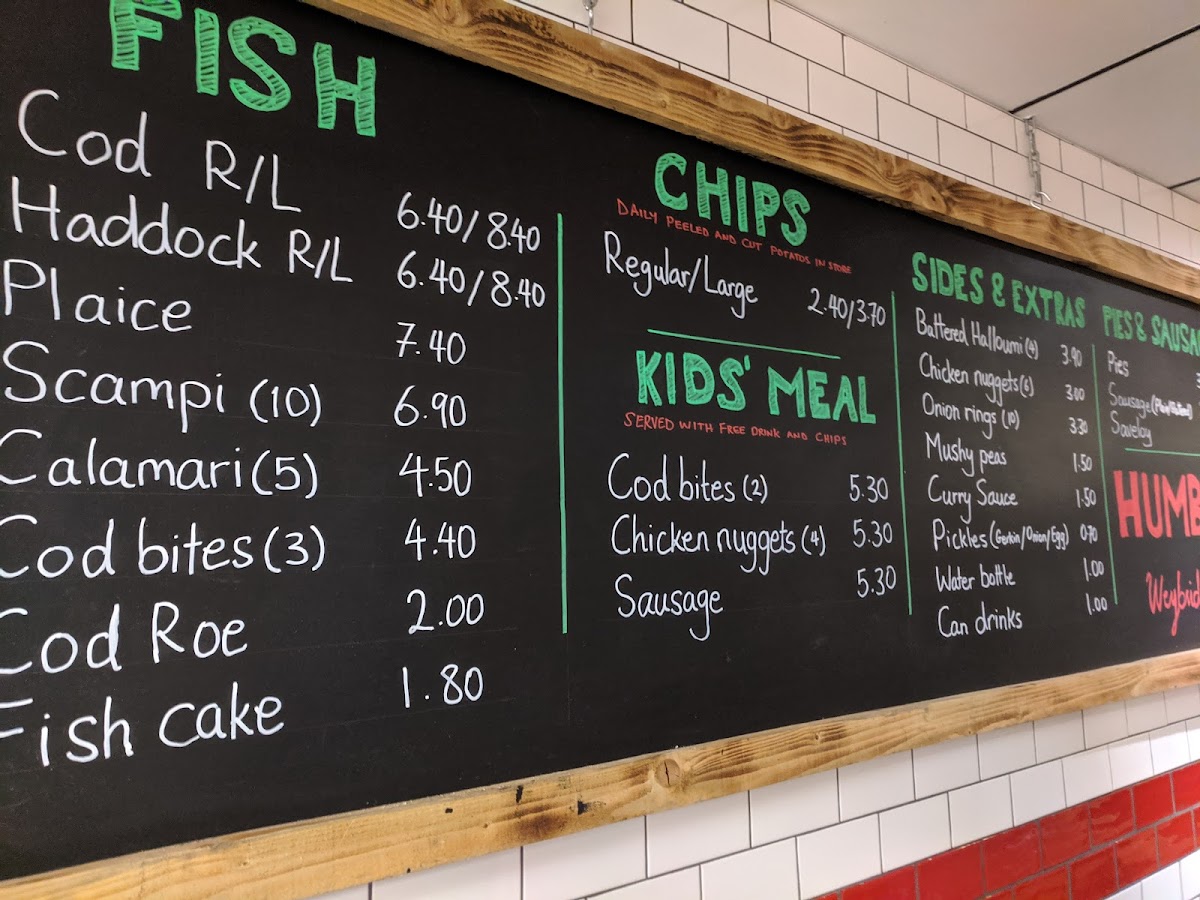 FISH
Cod R/L 6.40/8.40
Haddock R/L 6.40/8.40
Plaice 7.40
Scampi (10) 6.90
Calamari (5) 4.50
Cod bites (3) 4.40
Cod Roe 2.00
Fish cake 1.80
CHIPS
DAILY PEELED AND CUT POTATOS IN STORE
Regular/Large 2.40/3.70
KIDS' MEAL
SERVED WITH FREE DRINK AND CHIPS
Cod bites (2) 5.30
Chicken nuggets (4) 5.30
Sausage 5.30
SIDES & EXTRAS
Battered Halloumi (4) 3.90
Chicken nuggets (6) 3.00
Onion rings (10) 3.30
Mushy peas 1.50
Curry Sauce 1.50
Pickles (Gerkin/Onion/Egg) 0.70
Water bottle 1.00
Can drinks 1.00
PIES & SAUSA
Pies
Sausage
Saveloy
HUMB
Weybrid